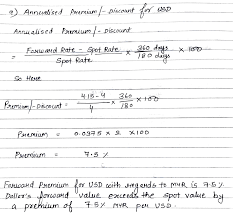 a) Annualised Premium/- Discount for USD
Annualised Premium/- Discount
= Forward Rate - Spot Rate × 360 days × 100
Spot Rate 180 days
So Here
Premium/-Discount = 4.15-4 × 360 × 100
4 180
Premium = 0.0375 × 2 × 100
Premium = 7.5 %
Forward Premium for USD with regards to MYR is 7.5 %
Dollar's forward value exceeds the spot value by
a premium of 7.5% MYR per USD.